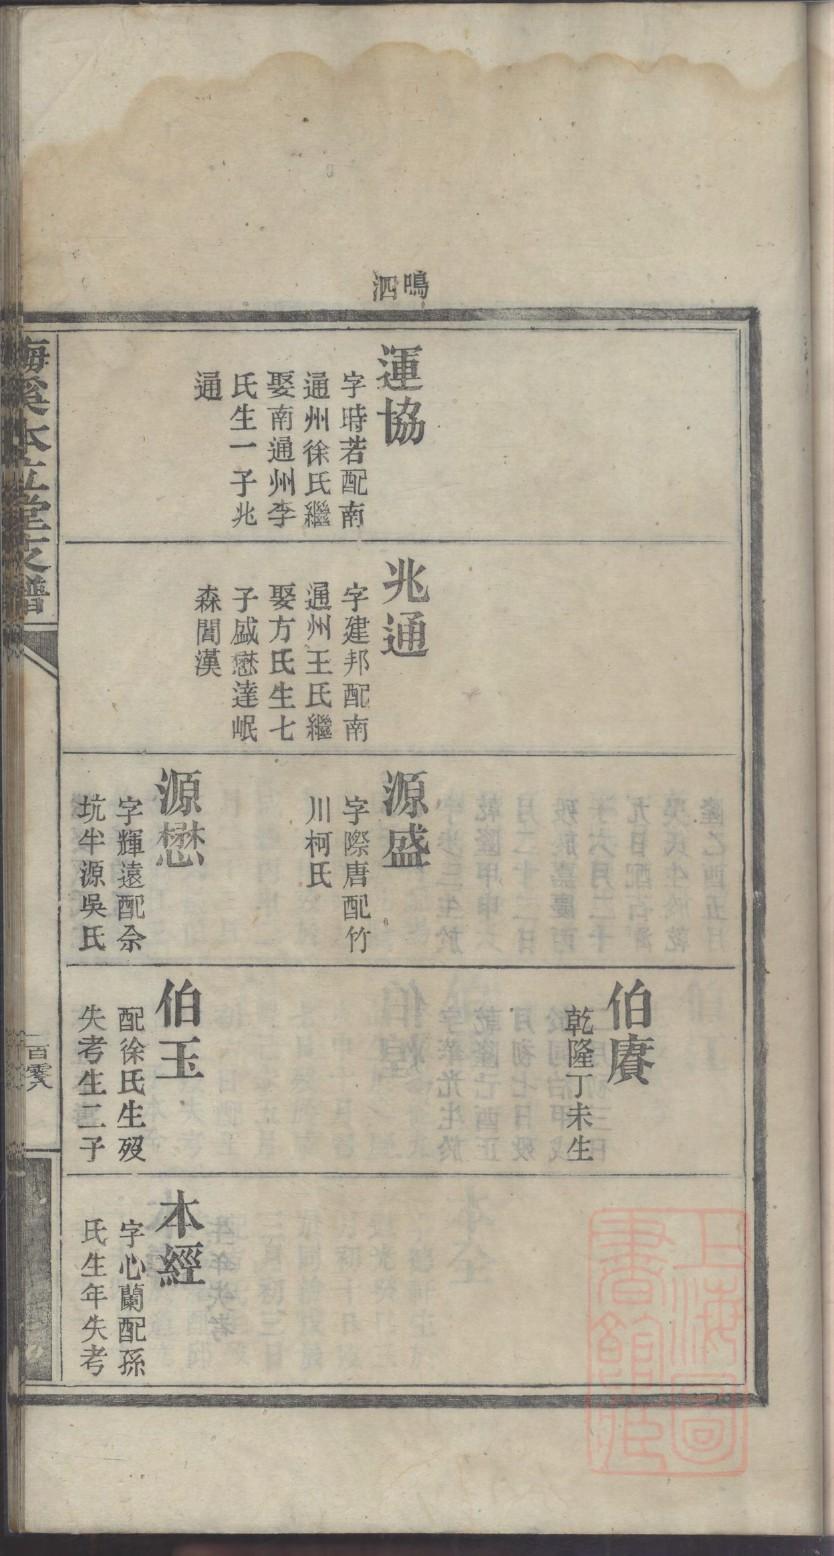 鳴
泗
運協
字時若配南
通州徐氏繼
娶南通州李
氏生一子兆
通
兆通
字建邦配南
通州王氏繼
娶方氏生七
子盛懋達岷
森閭漢
源盛
字際唐配竹
川柯氏
源懋
字輝遠配佘
坑半源吳氏
伯賡
乾隆丁未生
伯玉
配徐氏生歿
失考生二子
本經
字心蘭配孫
氏生年失考
百零八
上海圖
書館藏